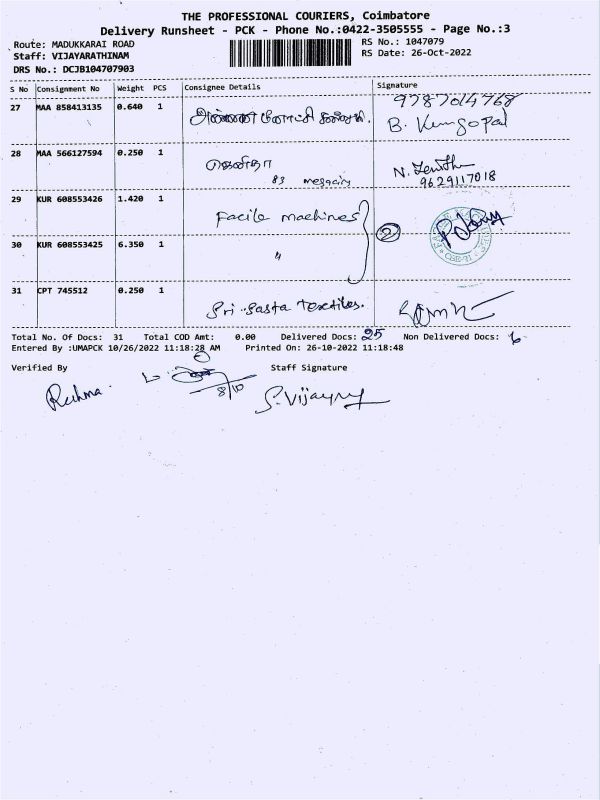 THE PROFESSIONAL COURIERS, Coimbatore
Delivery Runsheet - PCK - Phone No.:0422-3505555 - Page No.:3
Route: MADUKKARAI ROAD
RS No.: 1047079
Staff: VIJAYARATHINAM
RS Date: 26-Oct-2022
DRS No.: DCJB104707903
S No Consignment No Weight PCS Consignee Details Signature
27 MAA 858413135 0.640 1 9787014768
B. Kengopal
28 MAA 566127594 0.250 1
83 megacity
N. Zenith
9629117018
29 KUR 608553426 1.420 1 Facile machines
2
30 KUR 608553425 6.350 1 "
31 CPT 745512 0.250 1 Sri Sasta Textiles.
Total No. Of Docs: 31 Total COD Amt: 0.00 Delivered Docs: 25 Non Delivered Docs: 6
Entered By :UMAPCK 10/26/2022 11:18:28 AM Printed On: 26-10-2022 11:18:48
Verified By Staff Signature